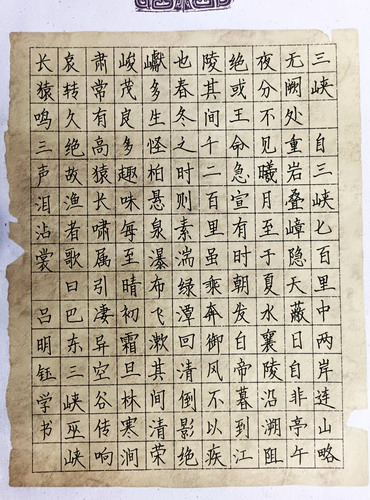 三峡 自三峡七百里中两岸连山略
无阙处重岩叠嶂隐天蔽日自非亭午
夜分不见曦月至于夏水襄陵沿溯阻
绝或王命急宣有时朝发白帝暮到江
陵其间千二百里虽乘奔御风不以疾
也春冬之时则素湍绿潭回清倒影绝
巘多生怪柏悬泉瀑布飞漱其间清荣
峻茂良多趣味每至晴初霜旦林寒涧
肃常有高猿长啸属引凄异空谷传响
哀转久绝故渔者歌曰巴东三峡巫峡
长猿鸣三声泪沾裳 吕明钰学书